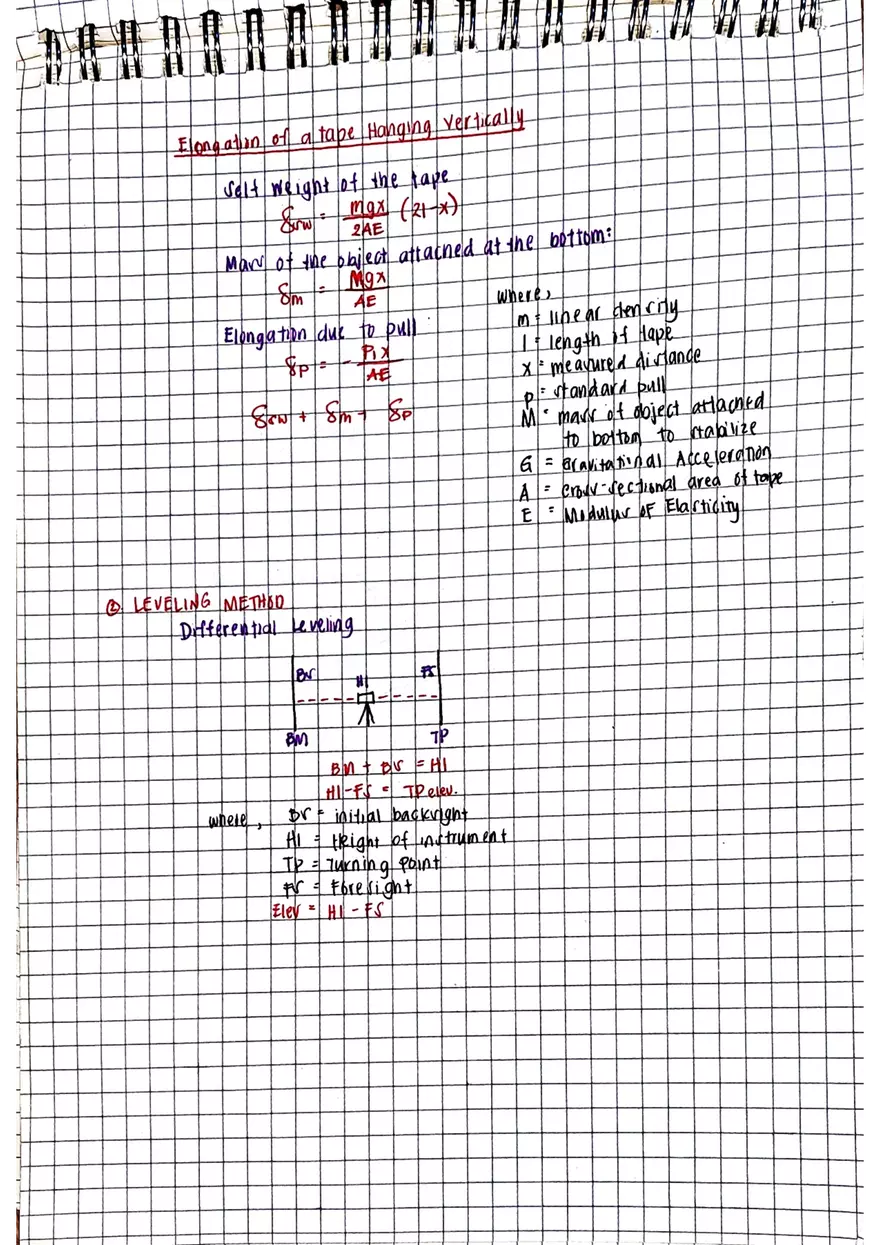 Elongation of a tape Hanging vertically
Self weight of the tape
δsw = mgx/2AE (2l-x)
Mass of the object attached at the bottom:
δm = Mgx/AE
Elongation due to pull
δp = - P₁x/AE
δsw + δm + δp
where,
m = linear density
l = length of tape
x = measured distance
p = standard pull
M = mass of object attached
to bottom to stabilize
G = Gravitational Acceleration
A = cross-sectional area of tape
E = Modulus OF Elasticity
② LEVELING METHOD
Differential Leveling
BS HI FS
BM TP
BM + BS = HI
HI-FS = TP elev.
where, BS = initial backsight
HI = Height of instrument
TP = Turning Point
FS = Foresight
Elev = HI - FS